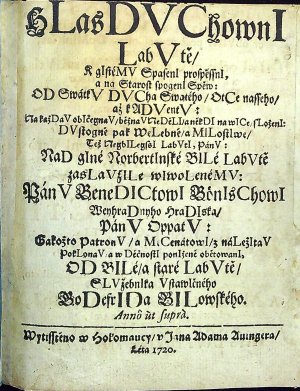 HLasDVChownI
LabVtě/
K glstěMV SpasenI prospěssnI,
a na Starost spogenI Spěw:
OD SwátkV DVCha Swatého/ OtCe nasseho/
až k ADVentV:
Na každaV obIčegnaV/ běžnaV NeDěLI/ a někDI na wICe sLoženI:
DVstogně pak WeLebné/ a MILostIwé/
Též NegbILegsI LabVtI, PánV:
NaD gIné NorbertInské BILé LabVtě
zasLaVžILe wIwoLeněMV:
PánV BeneDICtowI BönIsChowI
Weyhradnyho HraDIska/
PánV OppatV:
Gakožto PatronV/ a MeCenátowI/ z náLežItaV
PokLonaV: a w DěčnostI ponIženě obětowanI,
OD BILé/ a staré LabVtě/
SLVžebnIka VstawIčného
GoDefrIDa BILowského.
Anno út suprà.
Wytisstěno w Holomaucy/ v Jána Adama Auingera/
Léta 1720.